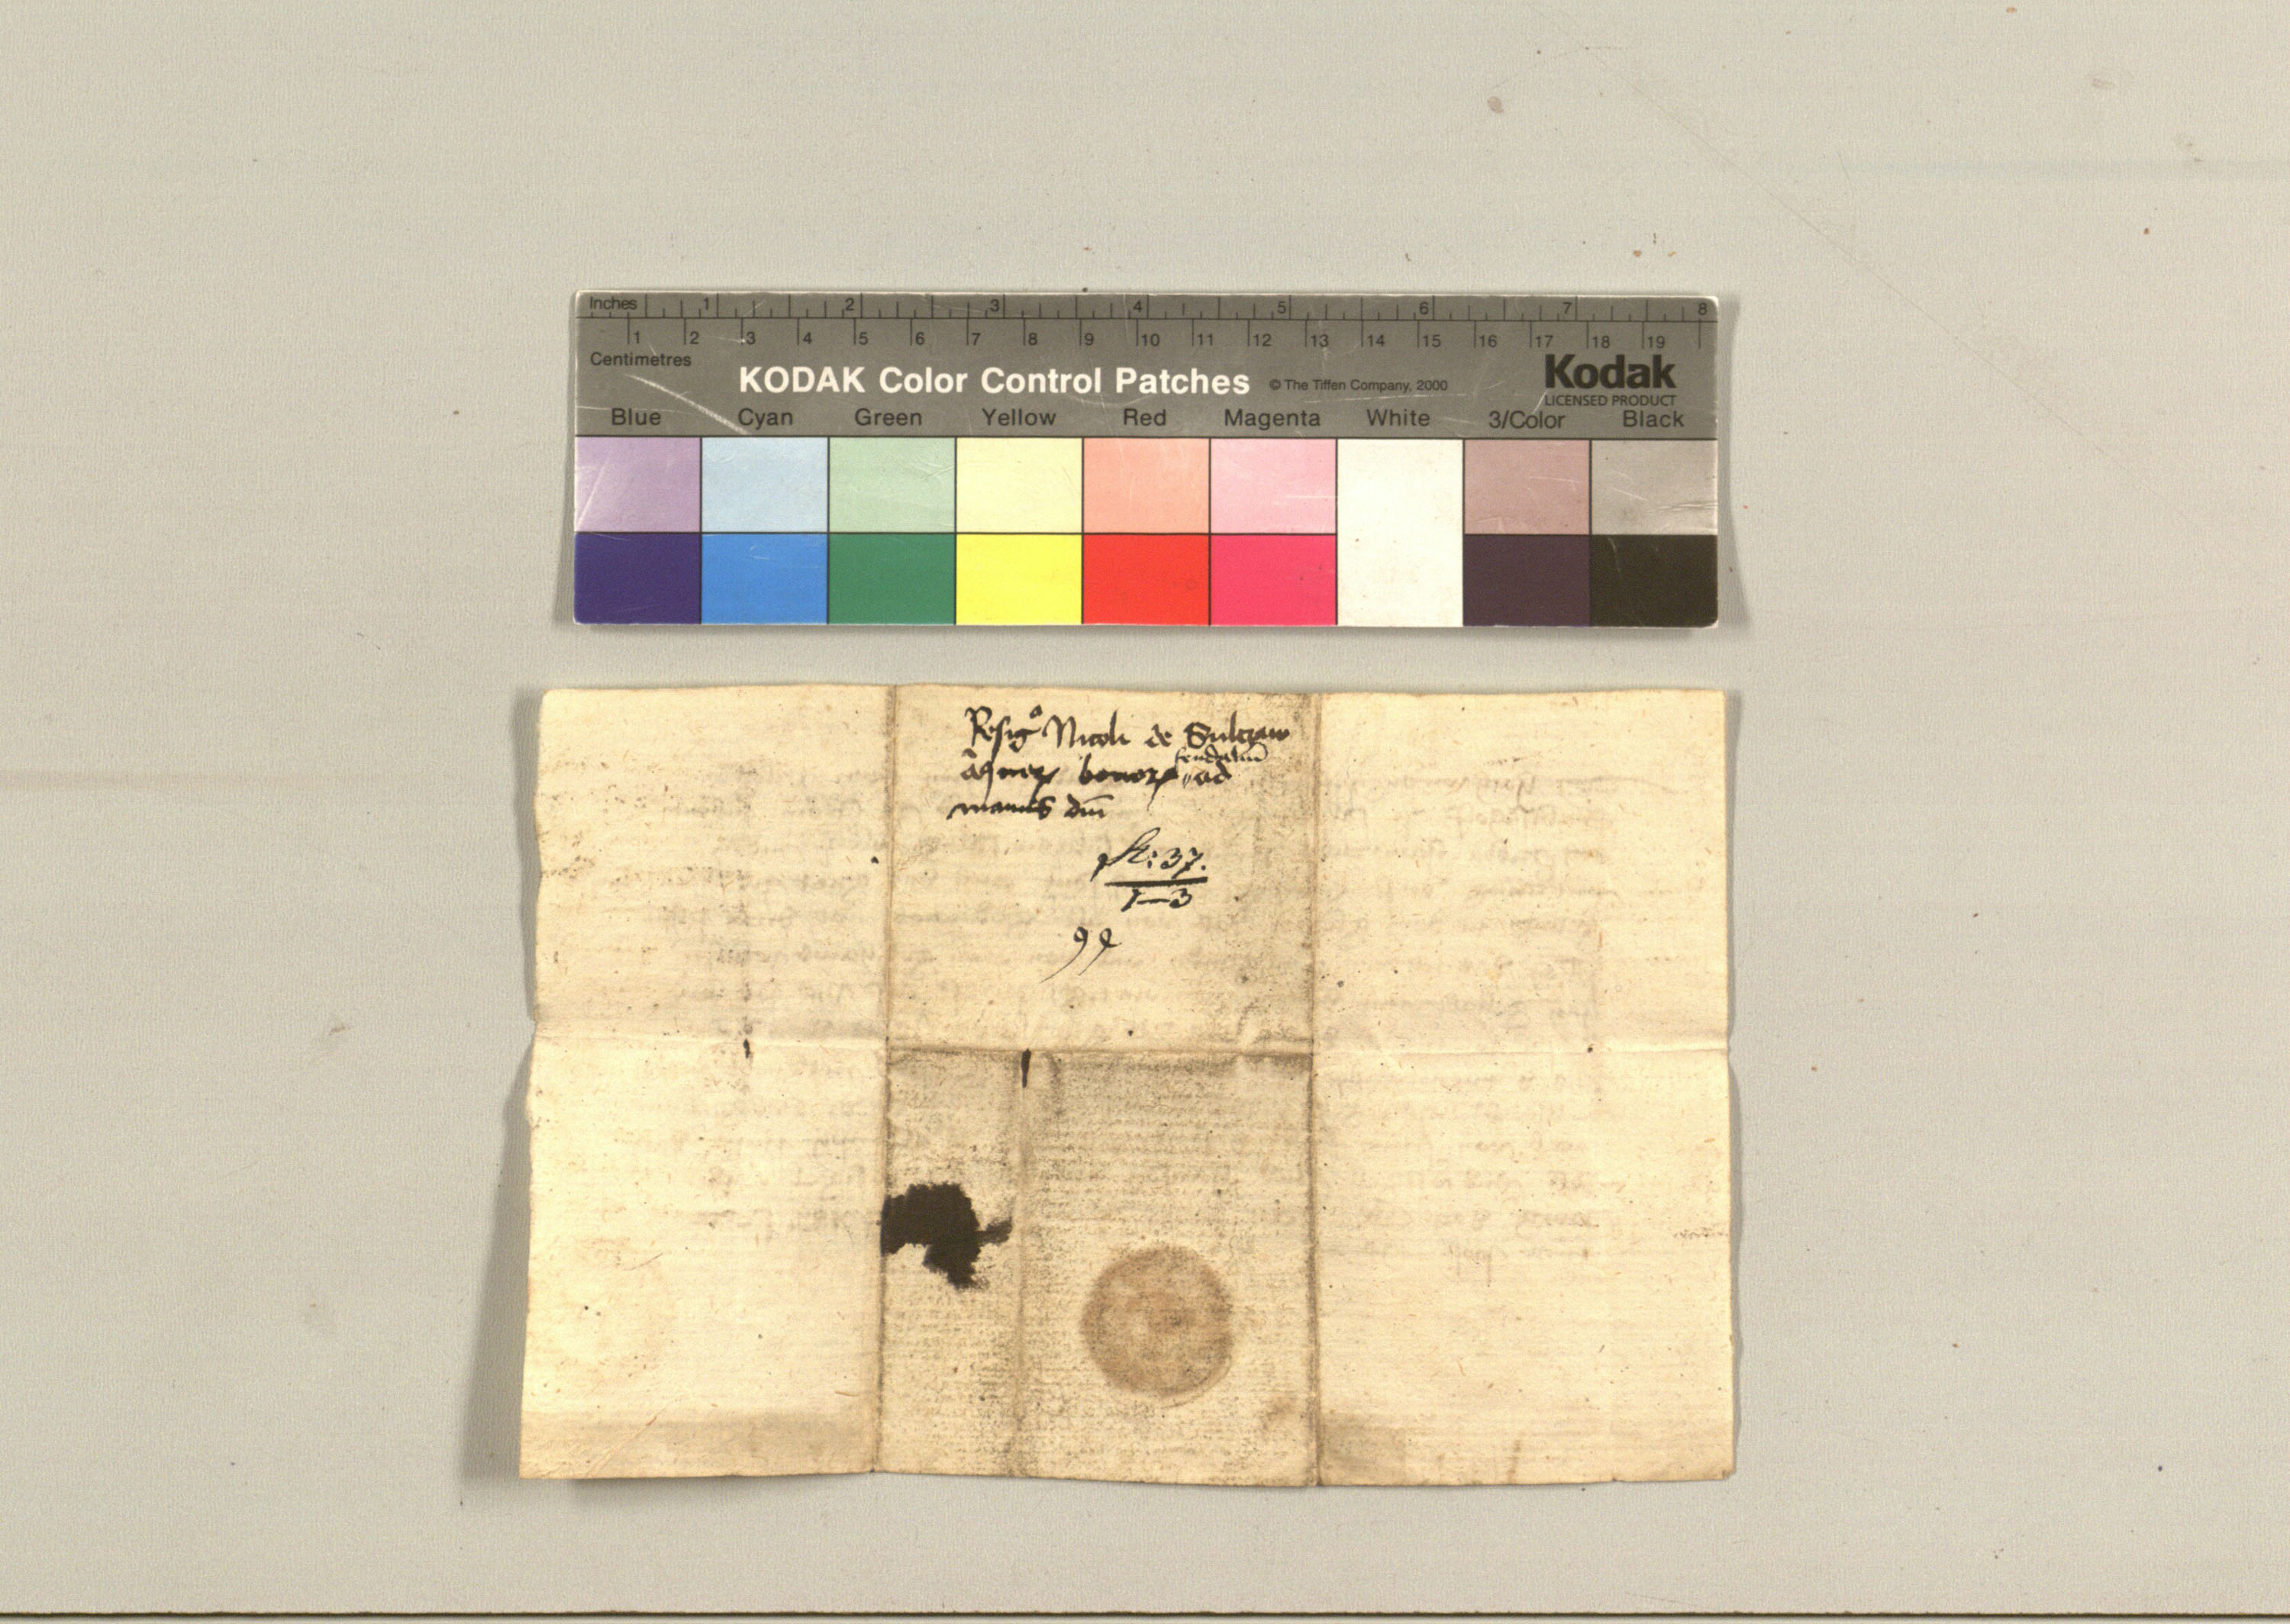 Inches 1 2 3 4 5 6 7 8
1 2 3 4 5 6 7 8 9 10 11 12 13 14 15 16 17 18 19
Centimetres
KODAK Color Control Patches © The Tiffen Company, 2000 Kodak
LICENSED PRODUCT
Blue Cyan Green Yellow Red Magenta White 3/Color Black
Resigᵒ Nicoli de Sulczaw
feudaliū
bonoꝝ ad
manus dm̄
St: 37.
1—3